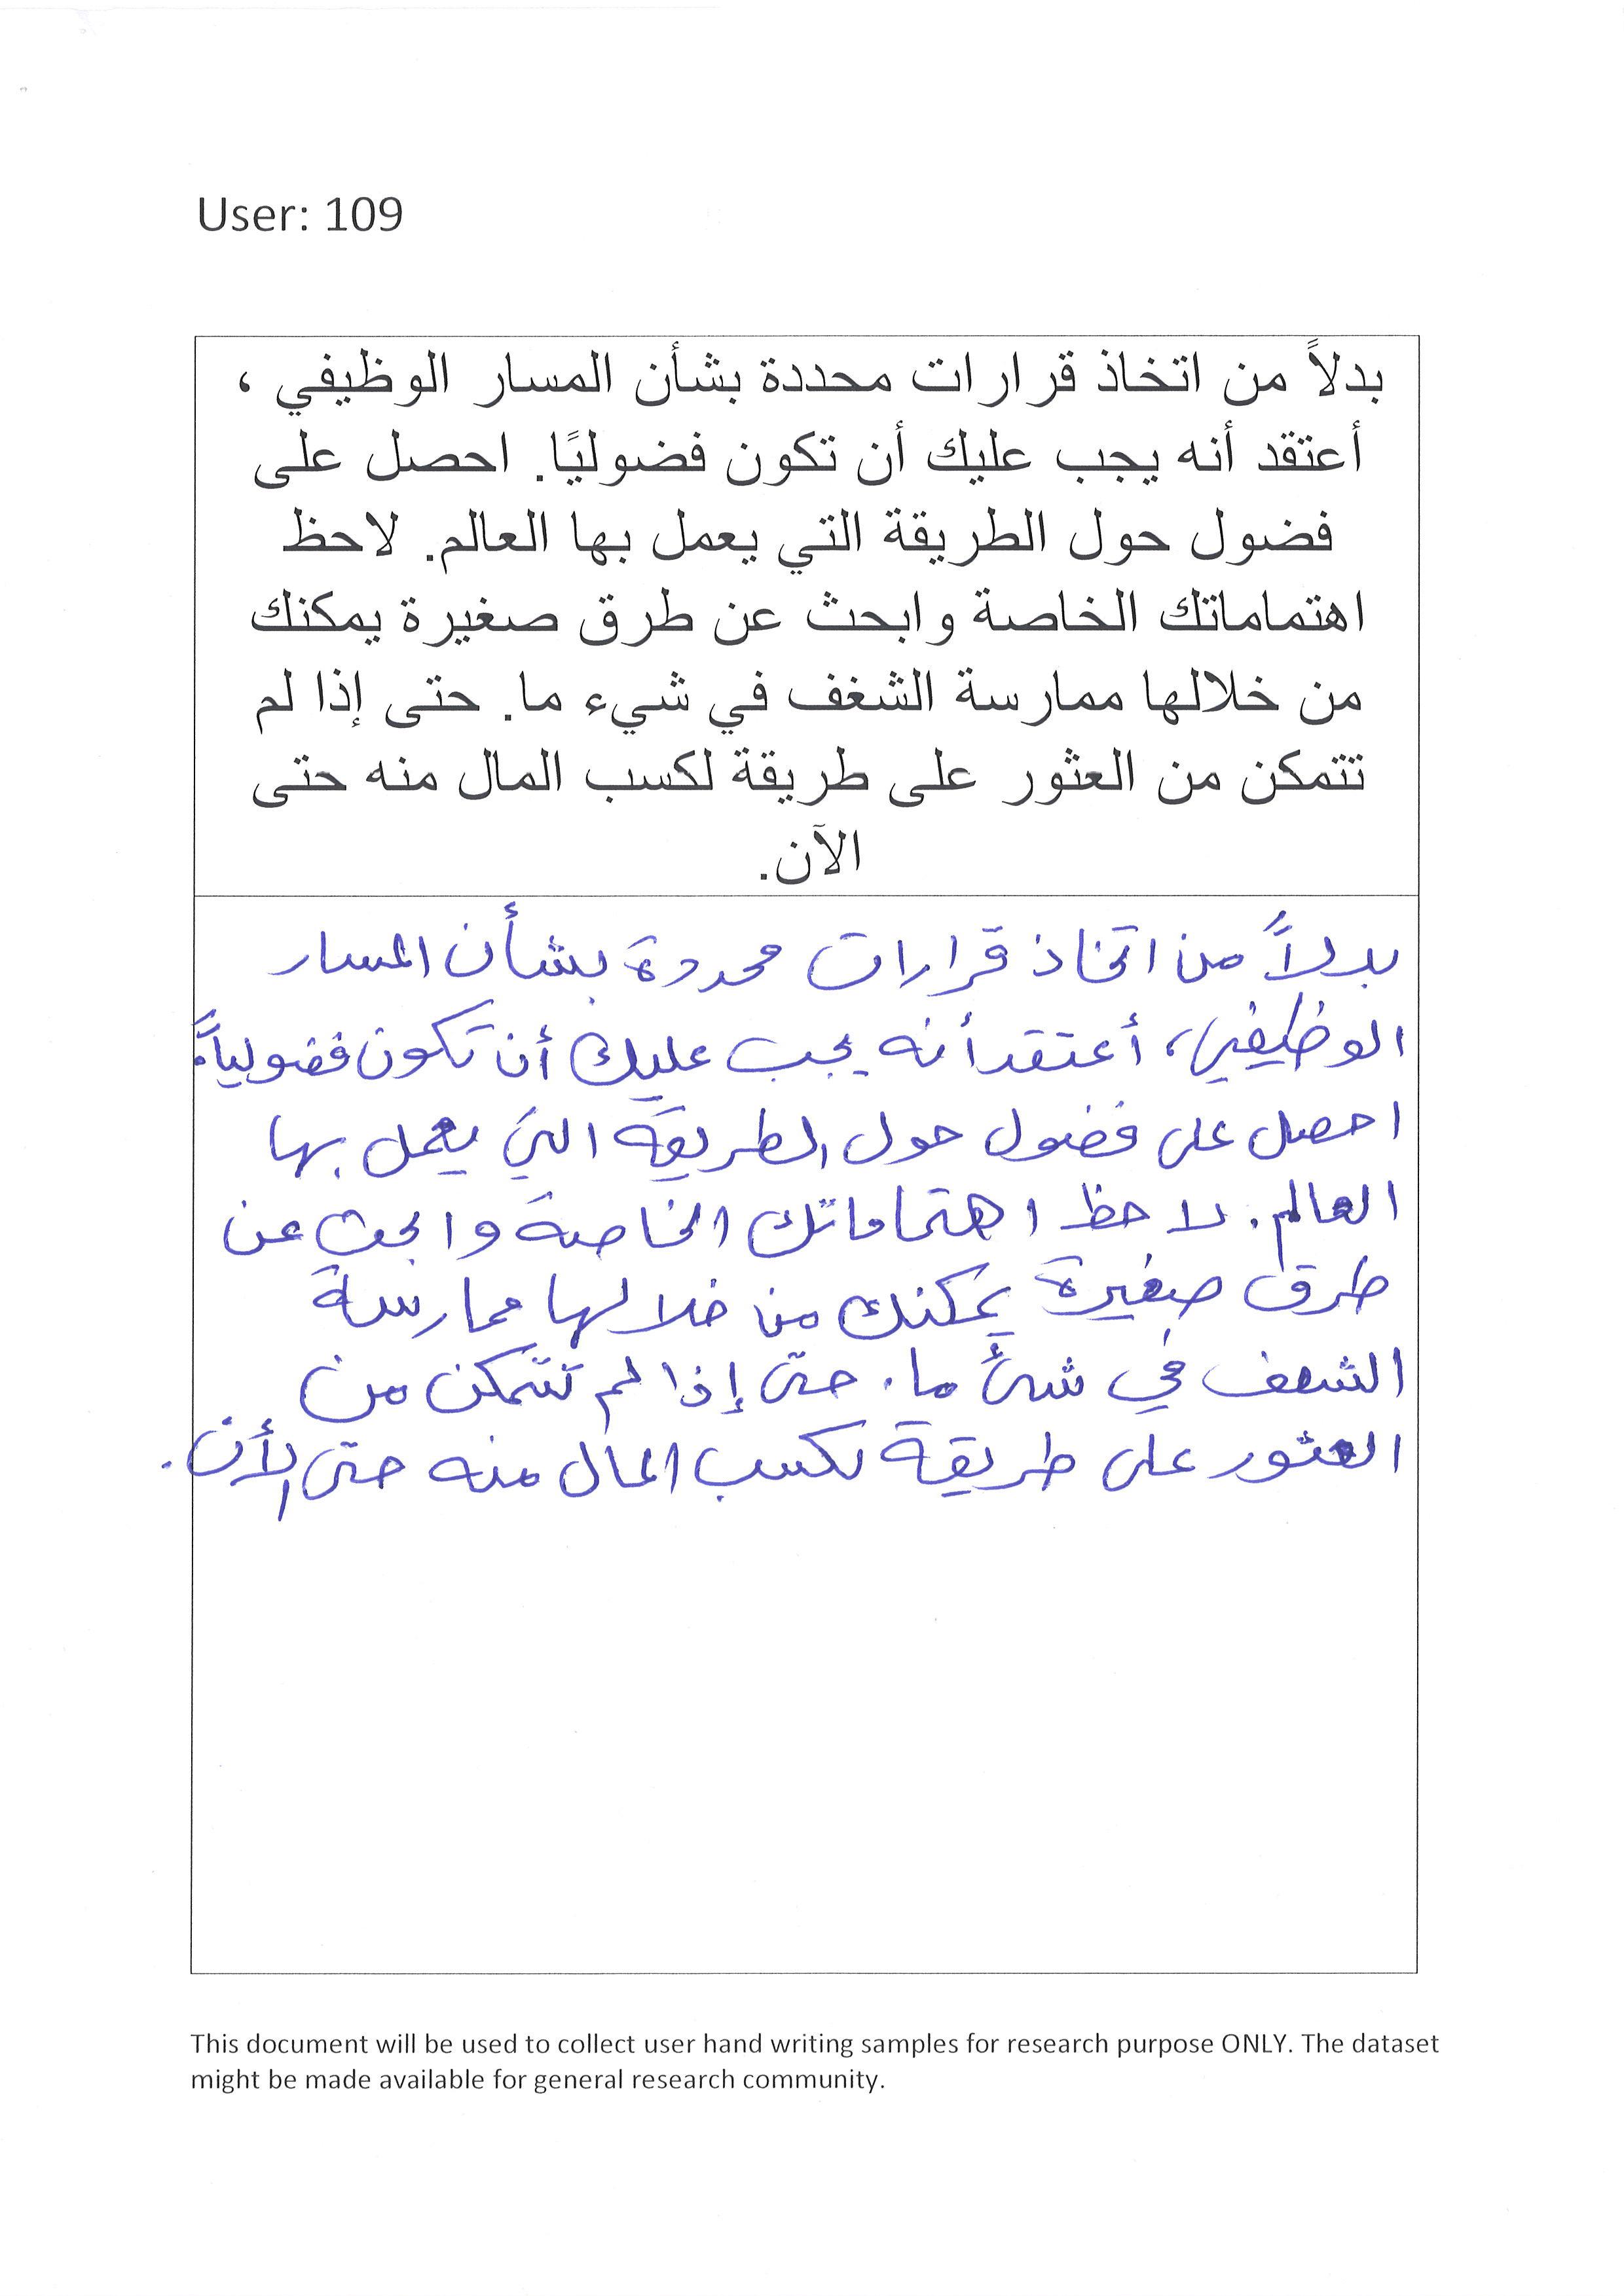 User: 109
بدلاً من اتخاذ قرارات محددة بشأن المسار الوظيفي ،
أعتقد أنه يجب عليك أن تكون فضوليًا. احصل على
فضول حول الطريقة التي يعمل بها العالم. لاحظ
اهتماماتك الخاصة وابحث عن طرق صغيرة يمكنك
من خلالها ممارسة الشغف في شيء ما. حتى إذا لم
تتمكن من العثور على طريقة لكسب المال منه حتى
الآن.
بدلاً من اتخاذ قرارات محددة بشأن المسار
الوظيفي، أعتقد أنه يجب عليك أن تكون فضولياً.
احصل على فضول حول الطريقة التي يعمل بها
العالم. لاحظ اهتماماتك الخاصة وابحث عن
طرق صغيرة يمكنك من خلالها ممارسة
الشغف في شئ ما. حتى إذا لم تتمكن من
العثور على طريقة لكسب المال منه حتى الأن.
This document will be used to collect user hand writing samples for research purpose ONLY. The dataset
might be made available for general research community.